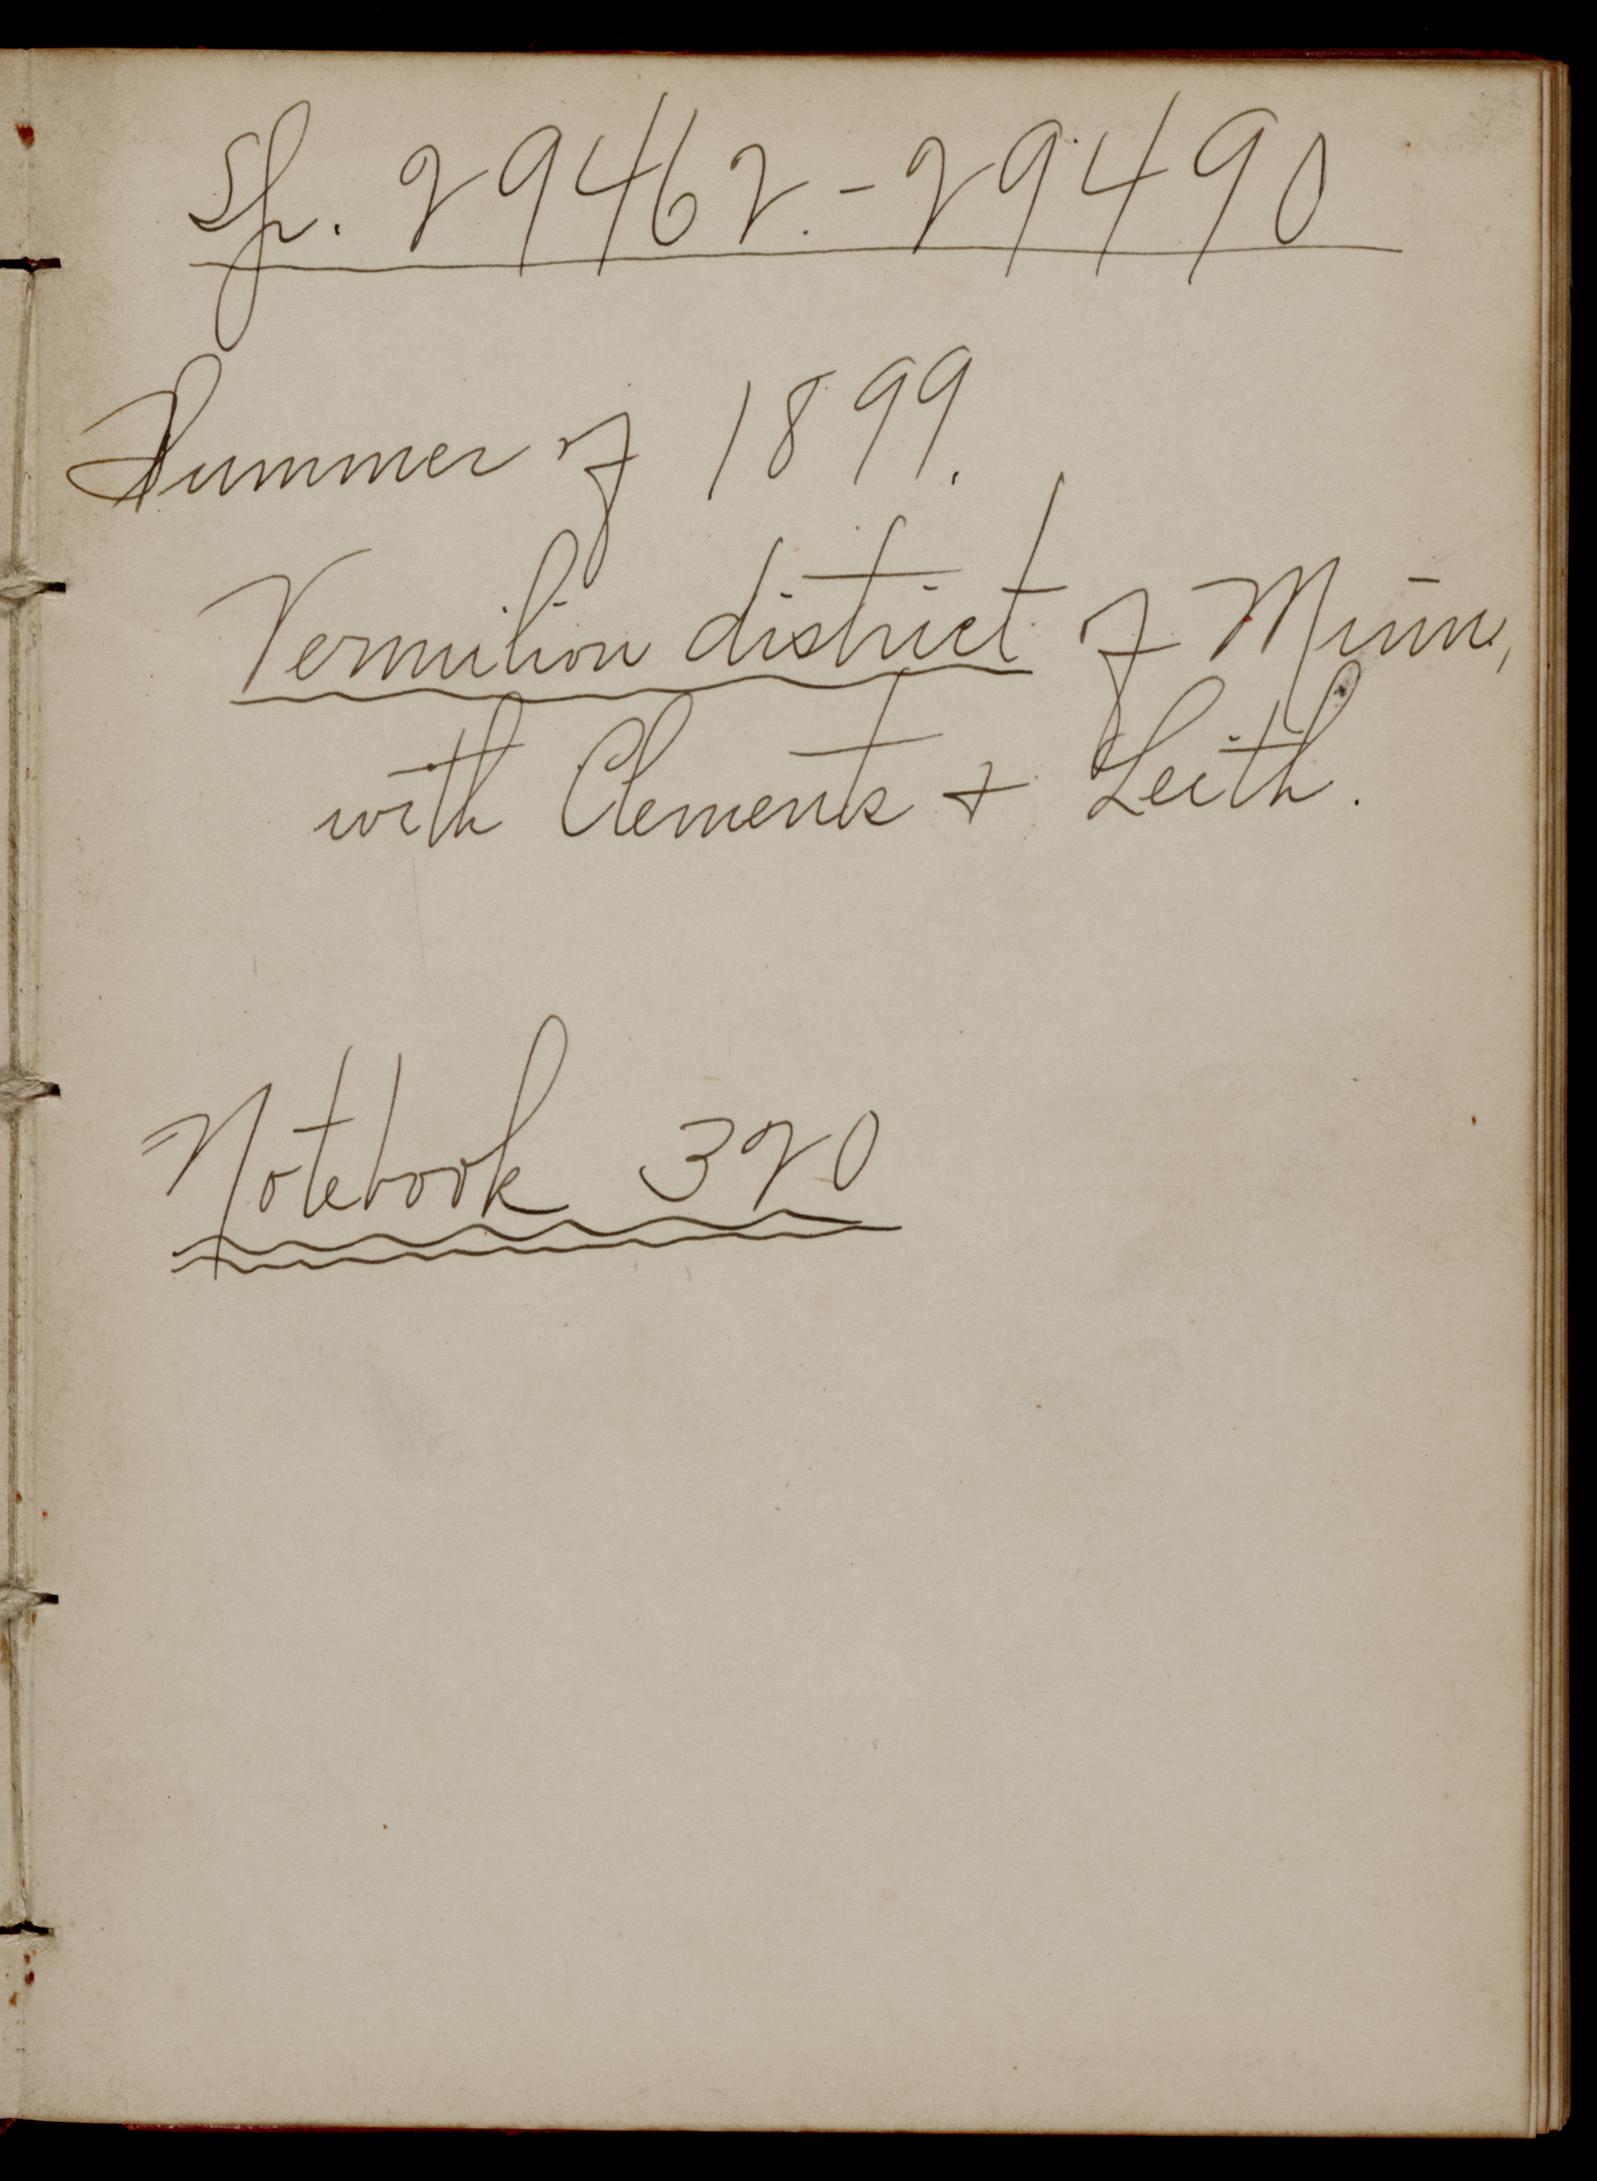 Sp. 29462.-29490
Summer of 1899.
Vermilion district of Minn,
with Clements & Leith.
Notebook 320